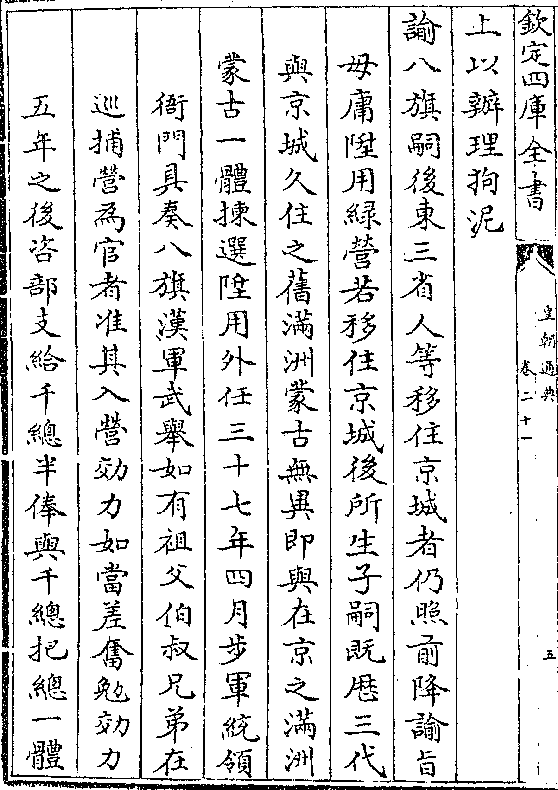 欽定四庫全書
皇朝通典
卷二十一
五
上以辦理狥泥
諭八旗嗣後東三省人等移住京城者仍照前降諭旨
毋庸陞用緑營若移住京城後所生子嗣既歴三代
與京城久住之舊滿洲蒙古無異即與在京之滿洲
蒙古一體揀選陞用外任三十七年四月步軍統領
衙門具奏八旗漢軍武舉如有祖父伯叔兄弟在
巡捕營為官者准其入營効力如當差奮勉効力
五年之後咨部支給千總半俸與千總把總一體